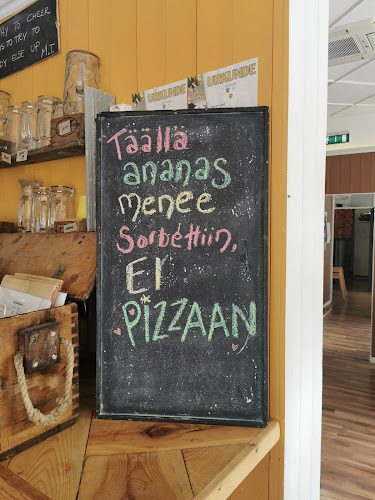 HY TO CHEER
IS TO TRY TO
DY ELSE UP M.T
URKUNDE
URKUNDE
Täällä
ananas
menee
Sorbettiin,
EI
PIZZAAN